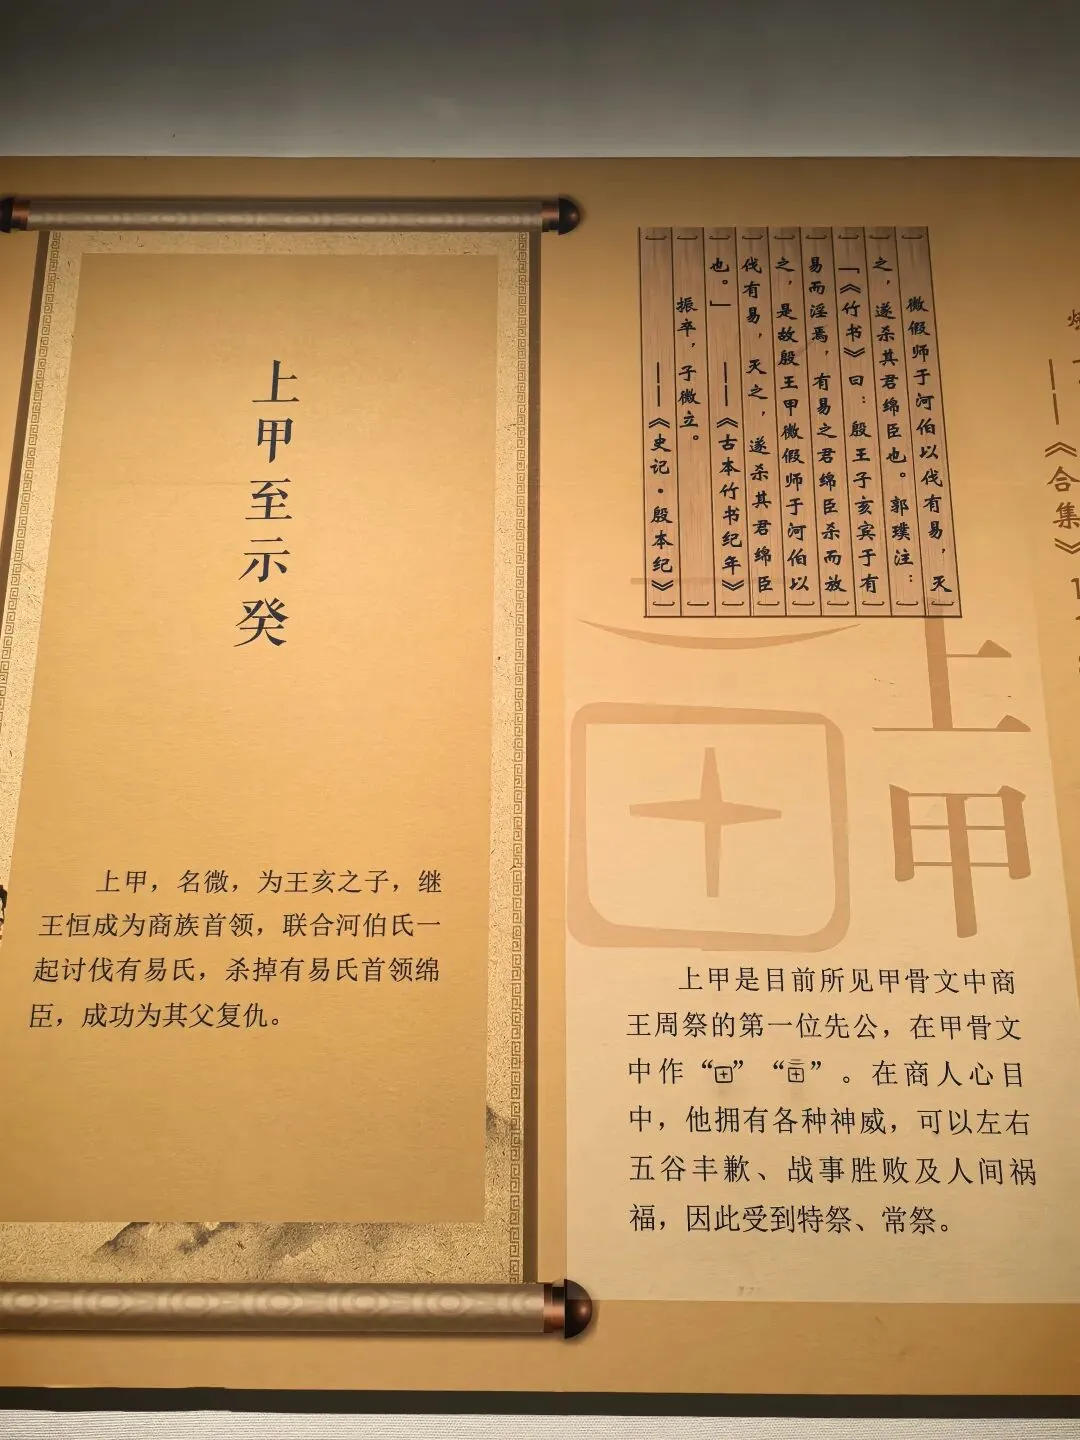 上甲至示癸
上甲，名微，为王亥之子，继
王恒成为商族首领，联合河伯氏一
起讨伐有易氏，杀掉有易氏首领绵
臣，成功为其父复仇。
微假师于河伯以伐有易，灭
之，遂杀其君绵臣也。郭璞注：
“《竹书》曰：殷王子亥宾于有
易而淫焉，有易之君绵臣杀而放
之，是故殷王甲微假师于河伯以
伐有易，灭之，遂杀其君绵臣
也。”——《古本竹书纪年》
振卒，子微立。
——《史记·殷本纪》
上甲
上甲是目前所见甲骨文中商
王周祭的第一位先公，在甲骨文
中作“”“”。在商人心目
中，他拥有各种神威，可以左右
五谷丰歉、战事胜败及人间祸
福，因此受到特祭、常祭。
——《合集》